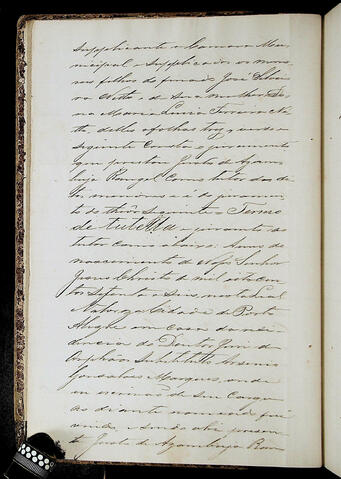 supplicante a Camara Mu-
nicipal e supplicados os meno-
res filhos do finado José Silvei-
ra Netto e de sua mulher Do-
na Maria Luiza Ferreira Ne-
tto delles a folhas
seguinte Consta o juramento
que prestou Justo de Azam-
buja Rangel como tutor dos di-
tos menores e é do
to do theor seguinte. Termo
de tutella
tutor como abaixo: Anno do
nascimento de Nosso Senhor
Jesus Christo de mil oito cen-
tos setenta e seis, nesta Leal
Valorosa Cidade de Porto
Alegre em casa da resi-
dencia do Doutor Juiz de
Orphãos Substituto Antonio
Gonsalves Marques, onde
eu escrivão de seu Cargo
ao diante nomeado fui
vindo, e sendo ahi presen-
te Justo de Azambuja Ran-